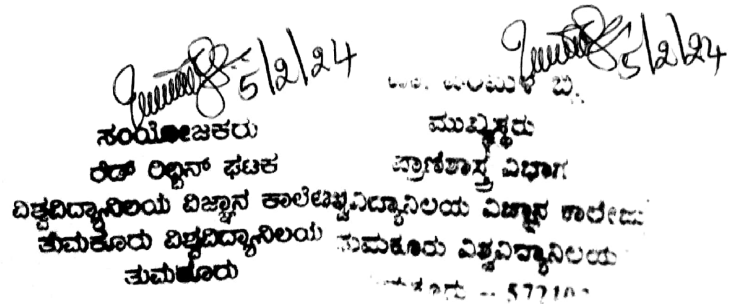 5/2/24
ಸಂಯೋಜಕರು
ರೆಡ್ ರಿಬ್ಬನ್ ಘಟಕ
ವಿಶ್ವವಿದ್ಯಾನಿಲಯ ವಿಜ್ಞಾನ ಕಾಲೇಜು
ತುಮಕೂರು ವಿಶ್ವವಿದ್ಯಾನಿಲಯ
ತುಮಕೂರು
5/2/24
ಮುಖ್ಯಸ್ಥರು
ಪ್ರಾಣಿಶಾಸ್ತ್ರ ವಿಭಾಗ
ವಿಶ್ವವಿದ್ಯಾನಿಲಯ ವಿಜ್ಞಾನ ಕಾಲೇಜು
ತುಮಕೂರು ವಿಶ್ವವಿದ್ಯಾನಿಲಯ